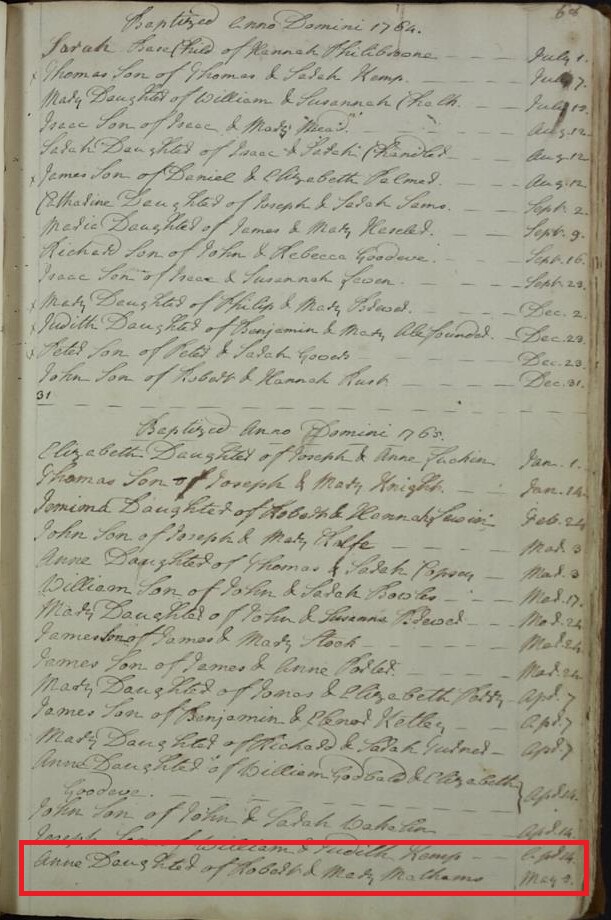 68
Baptized Anno Domini 1764.
Sarah Base Child of Hannah Philebrone July 1.
x Thomas Son of Thomas & Sarah Kemp July 7.
Mary Daughter of William & Susannah Chalk July
Isaac Son of Isaac & Mary Mead Aug. 12
Sarah Daughter of Isaac & Sarah Chandler Aug. 12
x James Son of Daniel & Elizabeth Palmer Aug. 12
Catharine Daughter of Joseph & Sarah Sams Sept. 2
Maria Daughter of James & Mary Sept. 9.
Richard Son of John & Rebecca Goodeve Sept. 16.
Isaac Son of Isaac & Susannah Sept. 23.
x Mary Daughter of Philip & Mary Brewer Dec. 2.
x Judith Daughter of Benjamin & Mary Dec. 23.
x Peter Son of Peter & Sarah Dec. 23
John Son of Robert & Hannah Rust Dec. 31.
31
Baptized Anno Domini 1765.
Elizabeth Daughter of Joseph & Anne Luckin Jan. 1.
Thomas Son of Joseph & Mary Knight Jan. 14
Jemima Daughter of Robert & Hannah Feb. 24
John Son of Joseph & Mary Rolfe Mar. 3
Anne Daughter of Thomas & Sarah Copsey Mar. 3
William Son of John & Sarah Bowles Mar. 17.
Mary Daughter of John & Susanna Brewer Mar. 24
James Son of James & Mary Stock Mar. 24
James Son of James & Anne Porter Mar. 24
Mary Daughter of Jonas & Elizabeth Apr. 7
James Son of Benjamin & Elenor Kelley Apr. 7
Mary Daughter of Richard & Sarah Turner Apr. 7
Anne Daughter of William Godbald & Elizabeth
Goodeve. Apr. 14.
John Son of John & Sarah Apr. 14.
Joseph Son of William & Judith Kemp Apr. 14
Anne Daughter of Robert & Mary Malhams May 2.